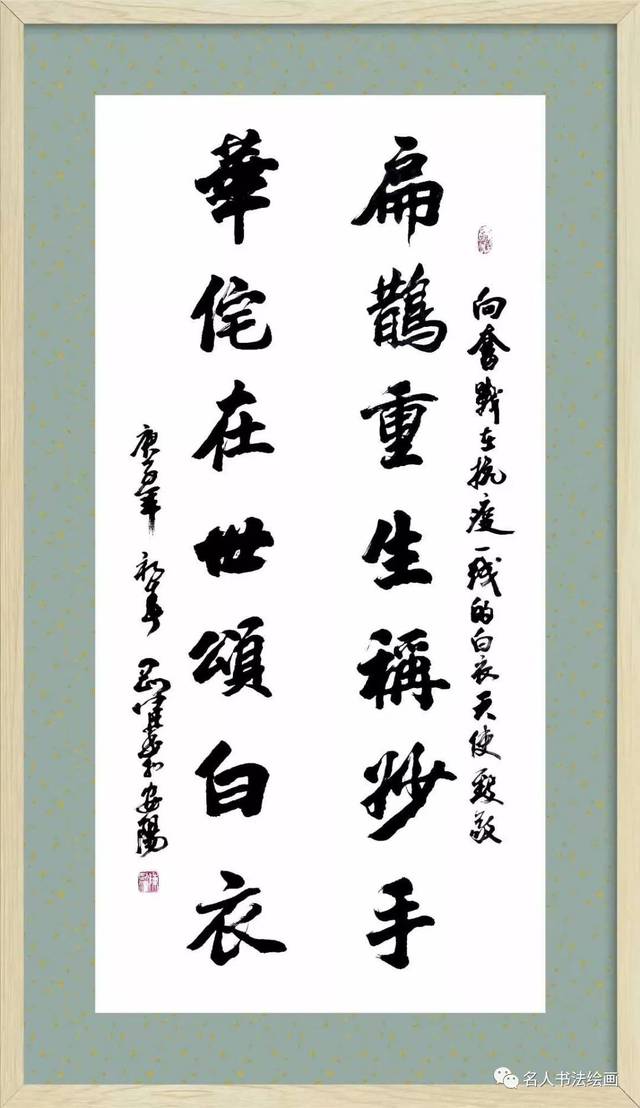 向奮戰在抗疫一线的白衣天使致敬
扁鵲重生稱妙手
華佗在世頌白衣
庚子年 初春 書於安陽
名人书法绘画